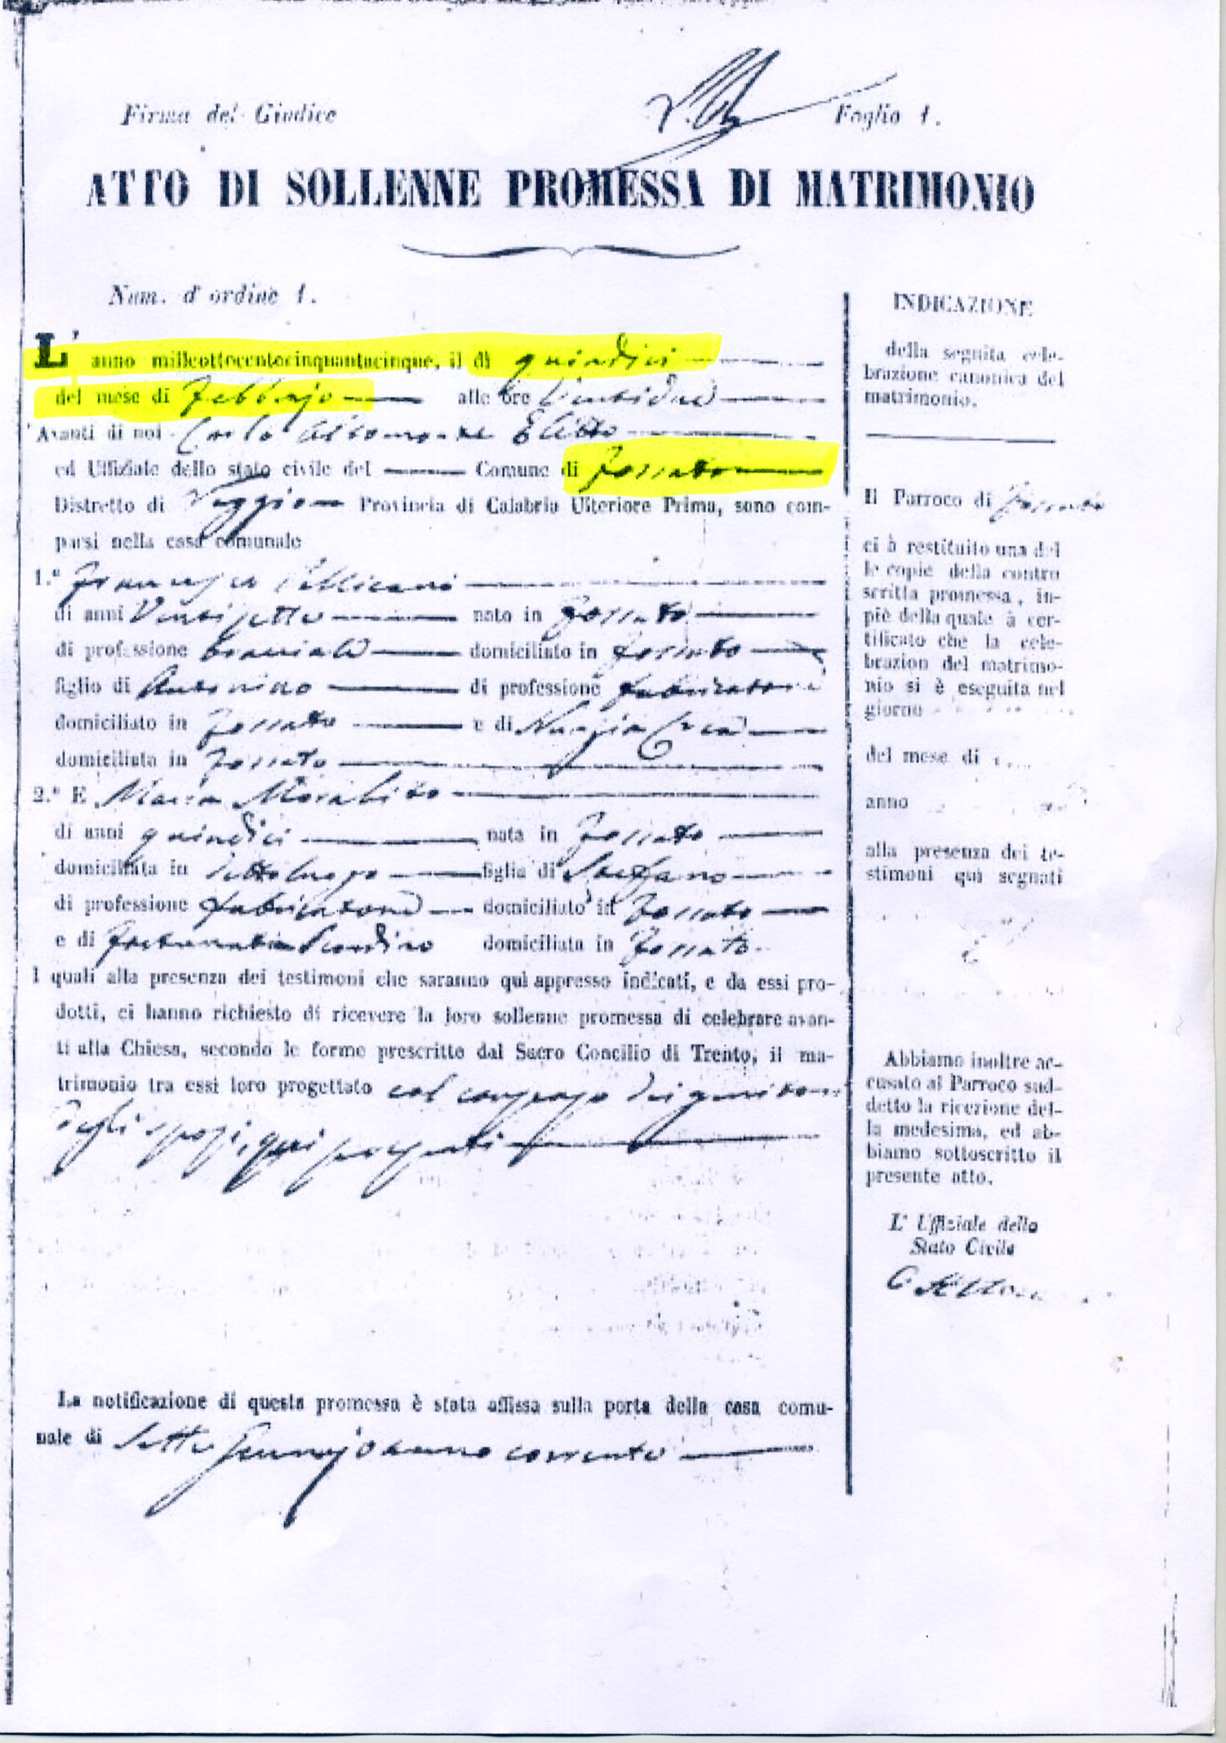 Firma del Giudice
Foglio 1.
ATTO DI SOLLENNE PROMESSA DI MATRIMONIO
Num. d'ordine 1.
L'anno millottocentocinquantacinque, il dì quindici
del mese di Febbrajo alle ore Ventidue
Avanti di noi Carlo Altomonte Eletto
ed Uffiziale dello stato civile del Comune di Fossato
Distretto di Reggio Provincia di Calabria Ulteriore Prima, sono com-
parsi nella casa comunale
1.° Francesco Pellicanò
di anni Ventisette nato in Fossato
di professione bracciale domiciliato in Fossato
figlio di Antonino di professione fabricatore
domiciliato in Fossato e di Nunzia
domiciliata in Fossato
2.° E Maria Morabito
di anni quindici nata in Fossato
domiciliata in sottoluogo figlia di Steffano
di professione fabricatore domiciliato in Fossato
e di Fortunata domiciliata in Fossato.
I quali alla presenza dei testimoni che saranno quì appresso indicati, e da essi pro-
dotti, ci hanno richiesto di ricevere la loro sollenne promessa di celebrare avan-
ti alla Chiesa, secondo le forme prescritte dal Sacro Concilio di Trento, il ma-
trimonio tra essi loro progettato col dei genitori
degli sposi, qui presenti
La notificazione di questa promessa è stata affissa sulla porta della casa comu-
nale di sette Gennajo anno corrente
INDICAZIONE
della seguita cele-
brazione canonica del
matrimonio.
Il Parroco di Fossato
ci à restituito una del
le copie della contro
scritta promessa, in-
piè della quale à cer-
tificato che la cele-
brazion del matrimo-
nio si è eseguita nel
giorno
del mese di
anno
alla presenza dei te-
stimoni quì segnati
Abbiamo inoltre ac-
cusato al Parroco sud-
detto la ricezione del-
la medesima, ed ab-
biamo sottoscritto il
presente atto.
L'Uffiziale dello
Stato Civile